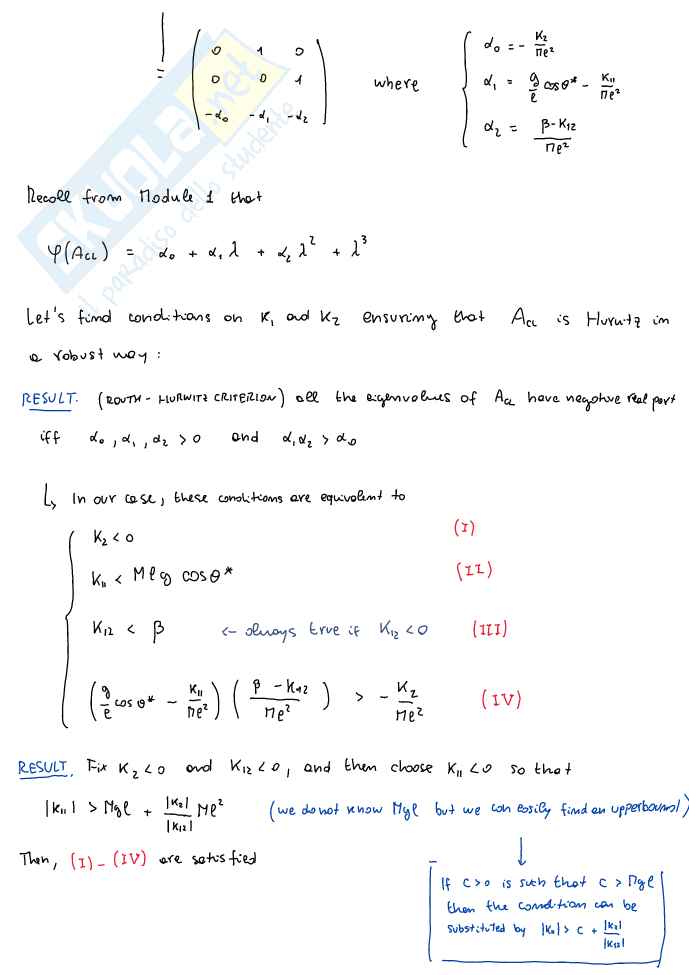 = ( 0 1 0
0 0 1
-α₀ -α₁ -α₂ ) where { α₀ = - K₂/Mℓ²
α₁ = g/ℓ cosθ* - K₁₁/Mℓ²
α₂ = β-K₁₂/Mℓ²
SKUOLA.net
il paradiso dello studente
Recall from Module 1 that
φ(A_CL) = α₀ + α₁λ + α₂λ² + λ³
Let's find conditions on K₁ and K₂ ensuring that A_CL is Hurwitz in
a robust way:
RESULT. (ROUTH-HURWITZ CRITERION) all the eigenvalues of A_CL have negative real part
iff α₀, α₁, α₂ > 0 and α₁α₂ > α₀
↳ In our case, these conditions are equivalent to
K₂ < 0 (I)
K₁₁ < Mℓg cosθ* (II)
K₁₂ < β <- always true if K₁₂ < 0 (III)
(g/ℓ cosθ* - K₁₁/Mℓ²) (β - K₁₂/Mℓ²) > - K₂/Mℓ² (IV)
RESULT. Fix K₂<0 and K₁₂<0, and then choose K₁₁<0 so that
|K₁₁| > Mgℓ + |K₂|/|K₁₂| Mℓ² (we do not know Mgℓ but we can easily find an upperbound)
Then, (I)-(IV) are satisfied
If C>0 is such that C > Mgℓ
then the condition can be
substituted by |K₁₁| > C + |K₂|/|K₁₂|